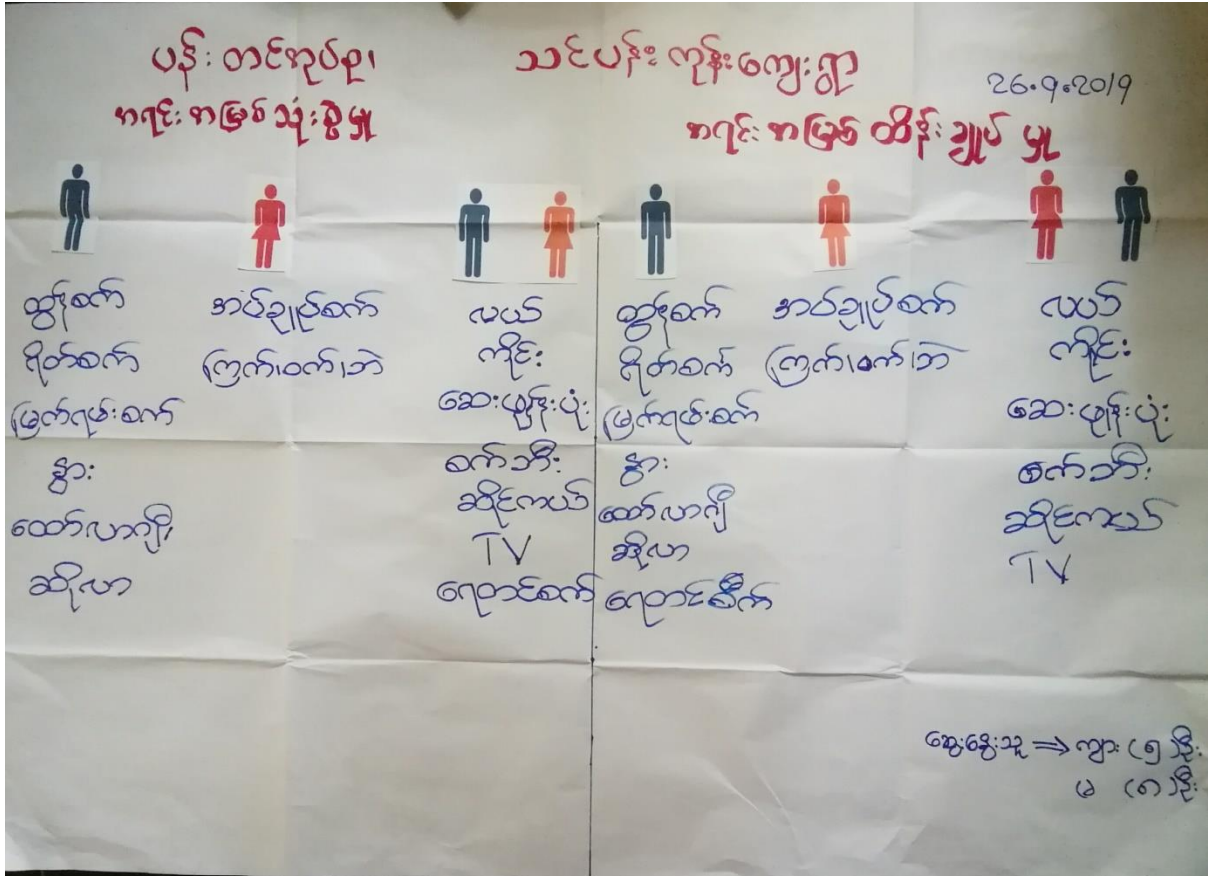 ပန်းတင်အုပ်စု၊ သင်ပန်းကုန်းကျေးရွာ
26.9.2019
အရင်းအမြစ်သုံးစွဲမှု
အရင်းအမြစ်ထိန်းချုပ်မှု
ထွန်စက်
ရိတ်စက်
မြက်ရမ်းစက်
နွား
ထော်လာဂျီ၊
ဆိုလာ
အပ်ချုပ်စက်
ကြက်၊ဝက်၊ဘဲ
လယ်
ကိုင်း
ဆေးဖျန်းပုံး
စက်ဘီး
ဆိုင်ကယ်
TV
ရေတင်စက်
ထွန်စက်
ရိတ်စက်
မြက်ရမ်းစက်
နွား
ထော်လာဂျီ
ဆိုလာ
ရေတင်စက်
အပ်ချုပ်စက်
ကြက်၊ဝက်၊ဘဲ
လယ်
ကိုင်း
ဆေးဖျန်းပုံး
စက်ဘီး
ဆိုင်ကယ်
TV
ဆွေးနွေးသူ ⇒ ကျား (၅)ဦး
မ (၈)ဦး